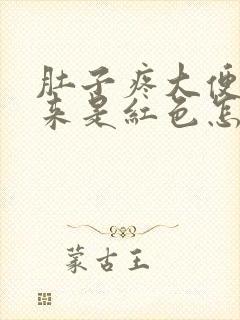 肚子疼大便
来是红色怎
蒙古王